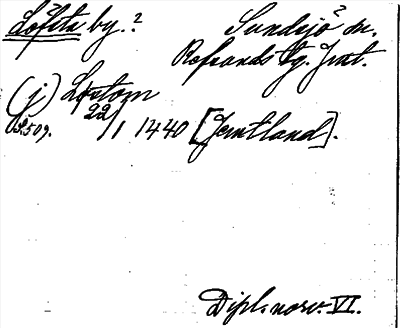 Löfsta by.? Sundsjö? sn.
Refsunds tg. Jmt.
(j) Lōxtom
S. 509. 22/1 1440 [Jemtland].
Dipl. norv. VI.